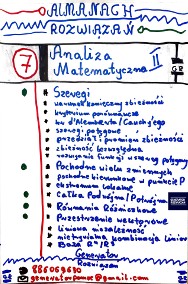 ALMANACH
ROZWIĄZAŃ
7
Analiza
Matematyczna II
Szeregi
warunek konieczny zbieżności
kryterium porównawcze
szeregi potęgowe
przedział / promień zbieżności
zbieżność bezwzględna
rozwijanie funkcji w szereg potęgowy
Pochodne wielu zmiennych
pochodne kierunkowe w punkcie P
ekstremum lokalne
Całka Podwójna / Potrójna
Równania Różniczkowe
Przestrzenie wektorowe
Liniowa niezależność
nietrywialna kombinacja liniowa
Baza
Generator
Rozwiązań